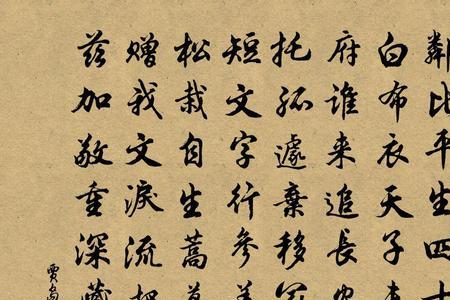 鄰比平生四十
白布衣天子
府誰来追長
托孤遽棄移
短文字行参
松栽自生蒿
赠我文淚流
茲加敬重深藏
賈島